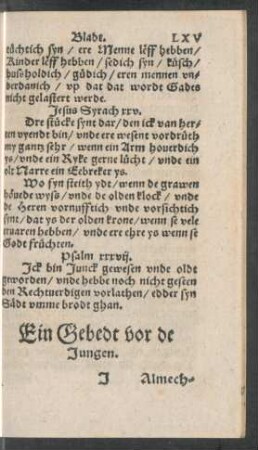 Bladt. LXV
tüchtich syn / ere Menne léff hebben /
Kinder léff hebben / sedich syn / küsch /
husholdich / güdich / eren mennen vn-
derdanich / vp dat dat wordt Gades
nicht gelastert werde.
Jesus Syrach xxv.
Dre stücke synt dar / den ick van her-
ten vyendt bin / vnde ere wesent vordrüth
my gantz sehr / wenn ein Arm houerdich
ys / vnde ein Ryke gerne lücht / vnde ein
olt Narre ein Eebreker ys.
Wo fyn steith ydt / wenn de grawen
höuede wyß / vnde de olden klock / vnde
de Heren vornufftich vnde vorsichtich
synt / dat ys der olden krone / wenn se vele
eruaren hebben / vnde ere ehre ys wenn se
Godt früchten.
Psalm xxxvij.
Jck bin Junck gewesen vnde oldt
geworden / vnde hebbe noch nicht geseen
den Rechtuerdigen vorlathen / edder syn
Sådt vmme brodt ghan.
Ein Gebedt vor de
Jungen.
J Almech-